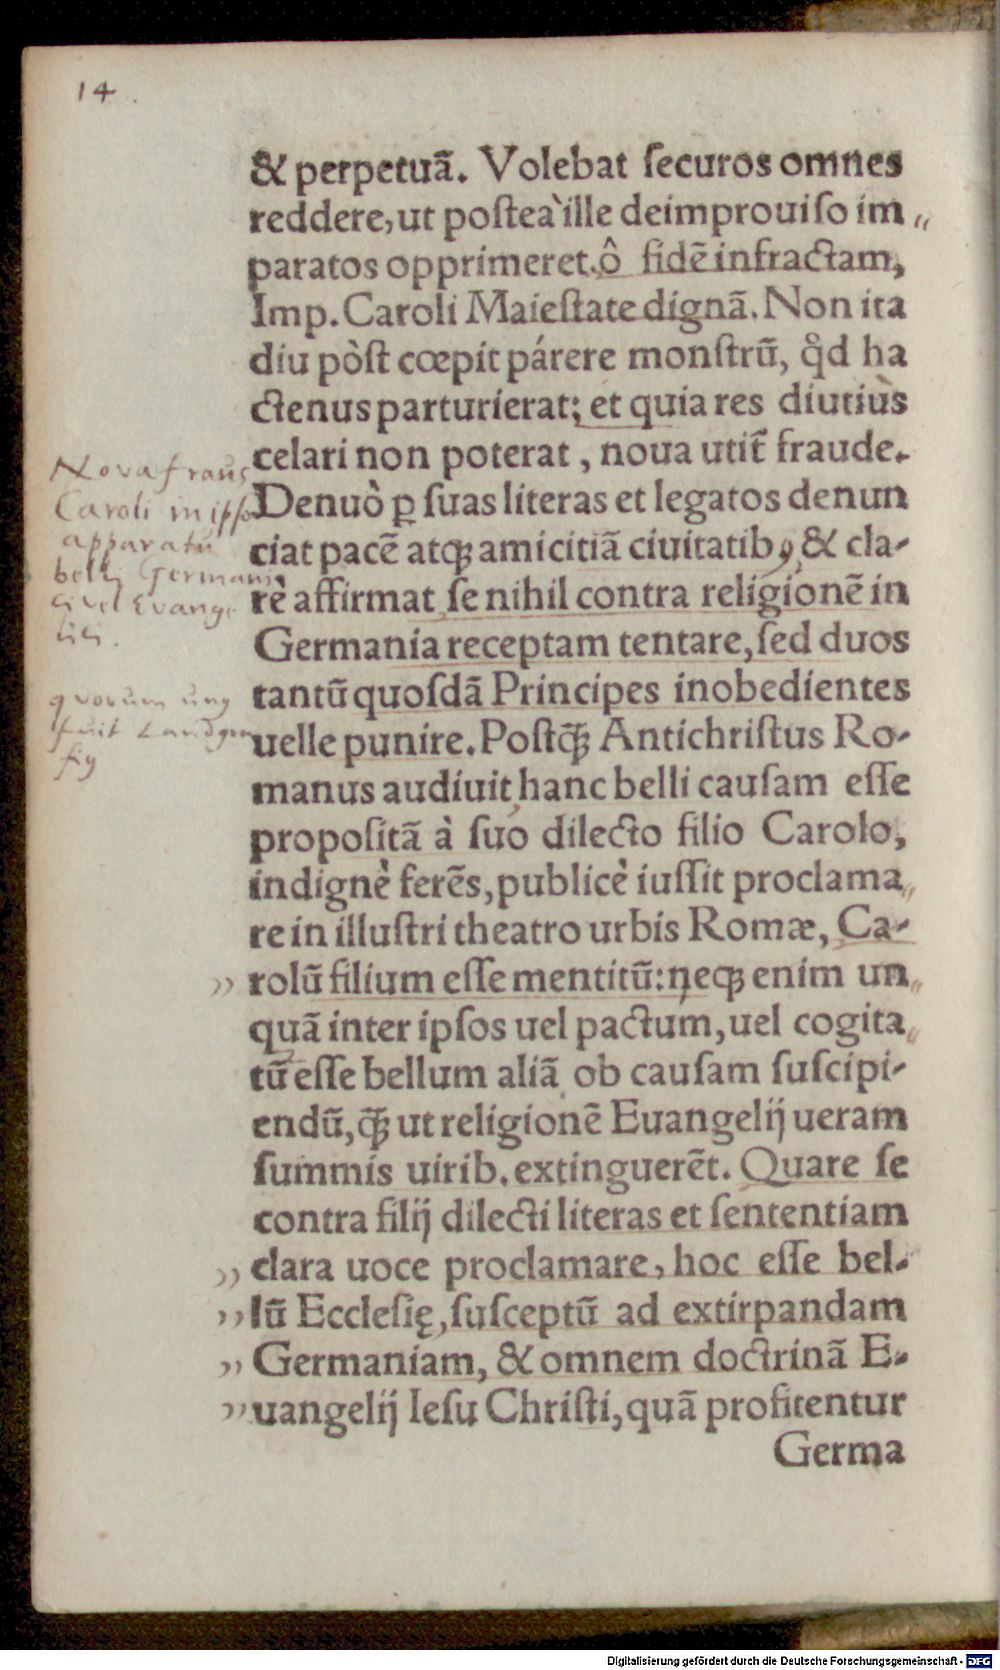 14.
& perpetuã. Volebat ſecuros omnes
reddere, ut poſteà ille deimprouiſo im„
paratos opprimeret. ô fidẽ infractam,
Imp. Caroli Maieſtate dignã. Non ita
diu pòſt cœpit párere monſtrũ, qd̊ ha
ctenus parturierat: et quia res diutiùs
celari non poterat, noua utit̃ fraude.
Denuò ꝑ ſuas literas et legatos denun
ciat pacẽ atqꝫ amicitiã ciuitatibꝰ, & cla-
rè affirmat, ſe nihil contra religionẽ in
Germania receptam tentare, ſed duos
tantũ quoſdã Principes inobedientes
uelle punire. Poſtqꝫ̃ Antichriſtus Ro-
manus audiuit, hanc belli cauſam eſſe
propoſitã à ſuo dilecto filio Carolo,
indignè ferẽs, publicè iuſſit proclama„
re in illuſtri theatro urbis Romæ, Ca-
„ rolũ filium eſſe mentitũ: neqꝫ enim un„
quã inter ipſos uel pactum, uel cogita„
tũ eſſe bellum aliã ob cauſam ſuſcipi-
endũ, qꝫ̃ ut religionẽ Euangelij ueram
ſummis uirib. extinguerẽt. Quare ſe
contra filij dilecti literas et ſententiam
„ clara uoce proclamare, hoc eſſe bel-
„ lũ Eccleſię, ſuſceptũ ad extirpandam
„ Germaniam, & omnem doctrinã E-
„ uangelij Ieſu Chriſti, quã profitentur
Germa
Nova fraus
Caroli in ipso
apparatu
belli German
ci vel Evange
lici.
quorum unꝰ
fuit Landgra
fiꝰ
Digitalisierung gefördert durch die Deutsche Forschungsgemeinschaft - DFG